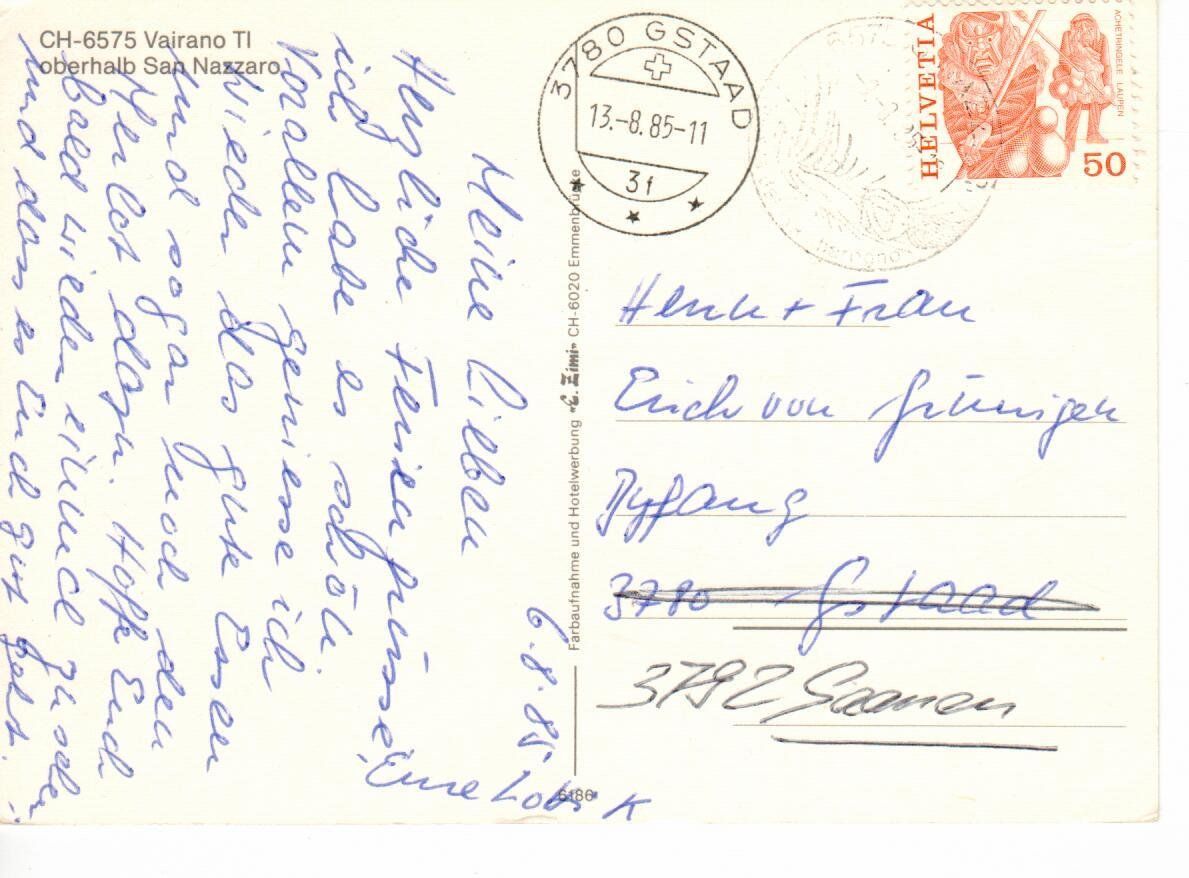 CH-6575 Vairano TI
oberhalb San Nazzaro
6.8.85
Meine Lieben
Herzliche Feriengrüsse,
ich habe es schön.
Vorallem geniesse ich
wieder das gute Essen
und sogar noch den
Herbst dazu. Hoffe Euch
bald wieder einmal zu sehen
und dass es Euch gut geht.
Eure
K
Farbaufnahme und Hotelwerbung «E. Zimi» CH-6020 Emmenbrücke
6186
3780 GSTAAD
13.-8.85-11
3f
6575
HELVETIA
ACHETRINGELE LAUPEN
50
Herrn + Frau
Erich von Grünigen
Byfang
3780 Gstaad
3792 Saanen